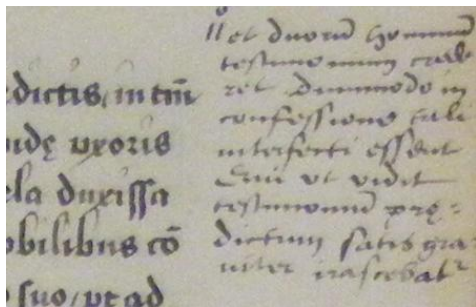 dictis, in tm̄
uxoris
duxissa
obilibus cō
suo, pt ad
et duorū hominum
testimonium cred
ret dummodo in
confessione tali
interfecti essent
Qui ut vidit
testimoniū prę-
dictum satis gra
viter irascebat᷑